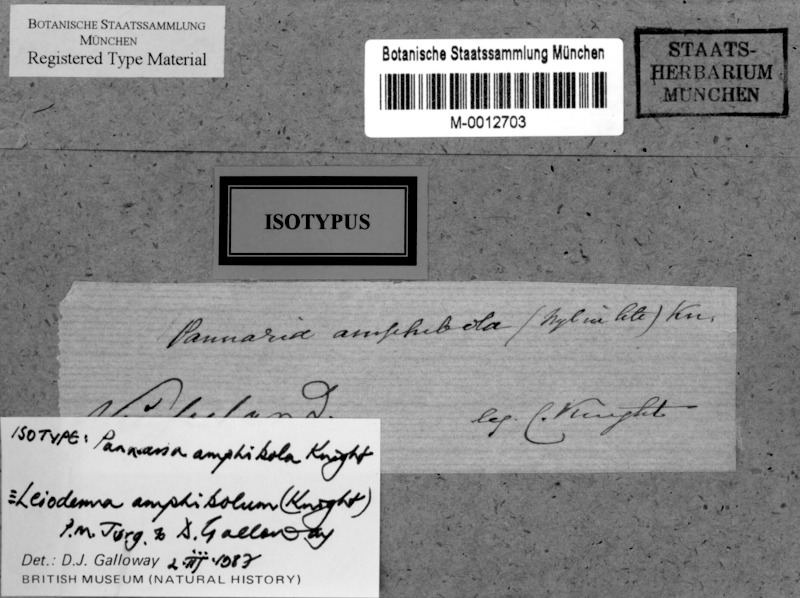 BOTANISCHE STAATSSAMMLUNG
MÜNCHEN
Registered Type Material
Botanische Staatssammlung München
M-0012703
STAATS-
HERBARIUM
MÜNCHEN
ISOTYPUS
Pannaria amphibola (Nyl in litt) Kn.
leg. C. Knight
ISOTYPE: Pannaria amphibola Knight
≡ Leioderma amphibolum (Knight)
P.M. Jørg. & D. Galloway
Det.: D.J. Galloway 2.iii.1987
BRITISH MUSEUM (NATURAL HISTORY)